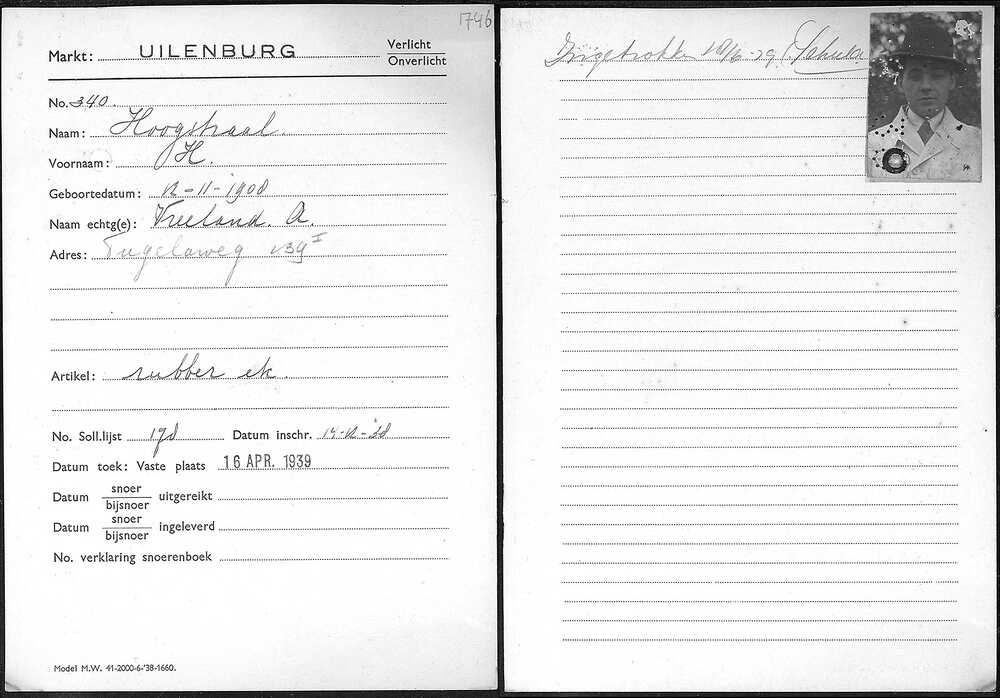 1746
Markt: UILENBURG Verlicht
Onverlicht
No. 340.
Naam: Hoogstraal.
Voornaam: H.
Geboortedatum: 12-11-1908
Naam echtg(e): Vreeland. A.
Adres: Tugelaweg 139 I
Artikel: rubber ek.
No. Soll.lijst 178 Datum inschr. 14-12-38
Datum toek: Vaste plaats 16 APR. 1939
Datum snoer uitgereikt
bijsnoer
Datum snoer ingeleverd
bijsnoer
No. verklaring snoerenboek
Model M.W. 41-2000-6-'38-1660.
Ingetrokken Schuld